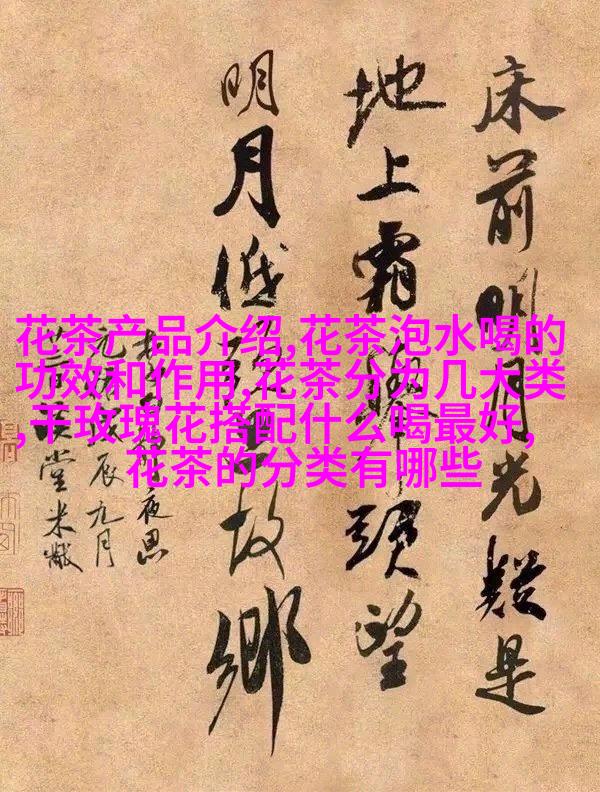 花茶产品介绍,花茶泡水喝的
功效和作用,花茶分为几大类
,干玫瑰花搭配什么喝最好,
花茶的分类有哪些
床前明月光疑是
地上霜頭望
明月低故鄉
夜思
元辰九月
堂米黻